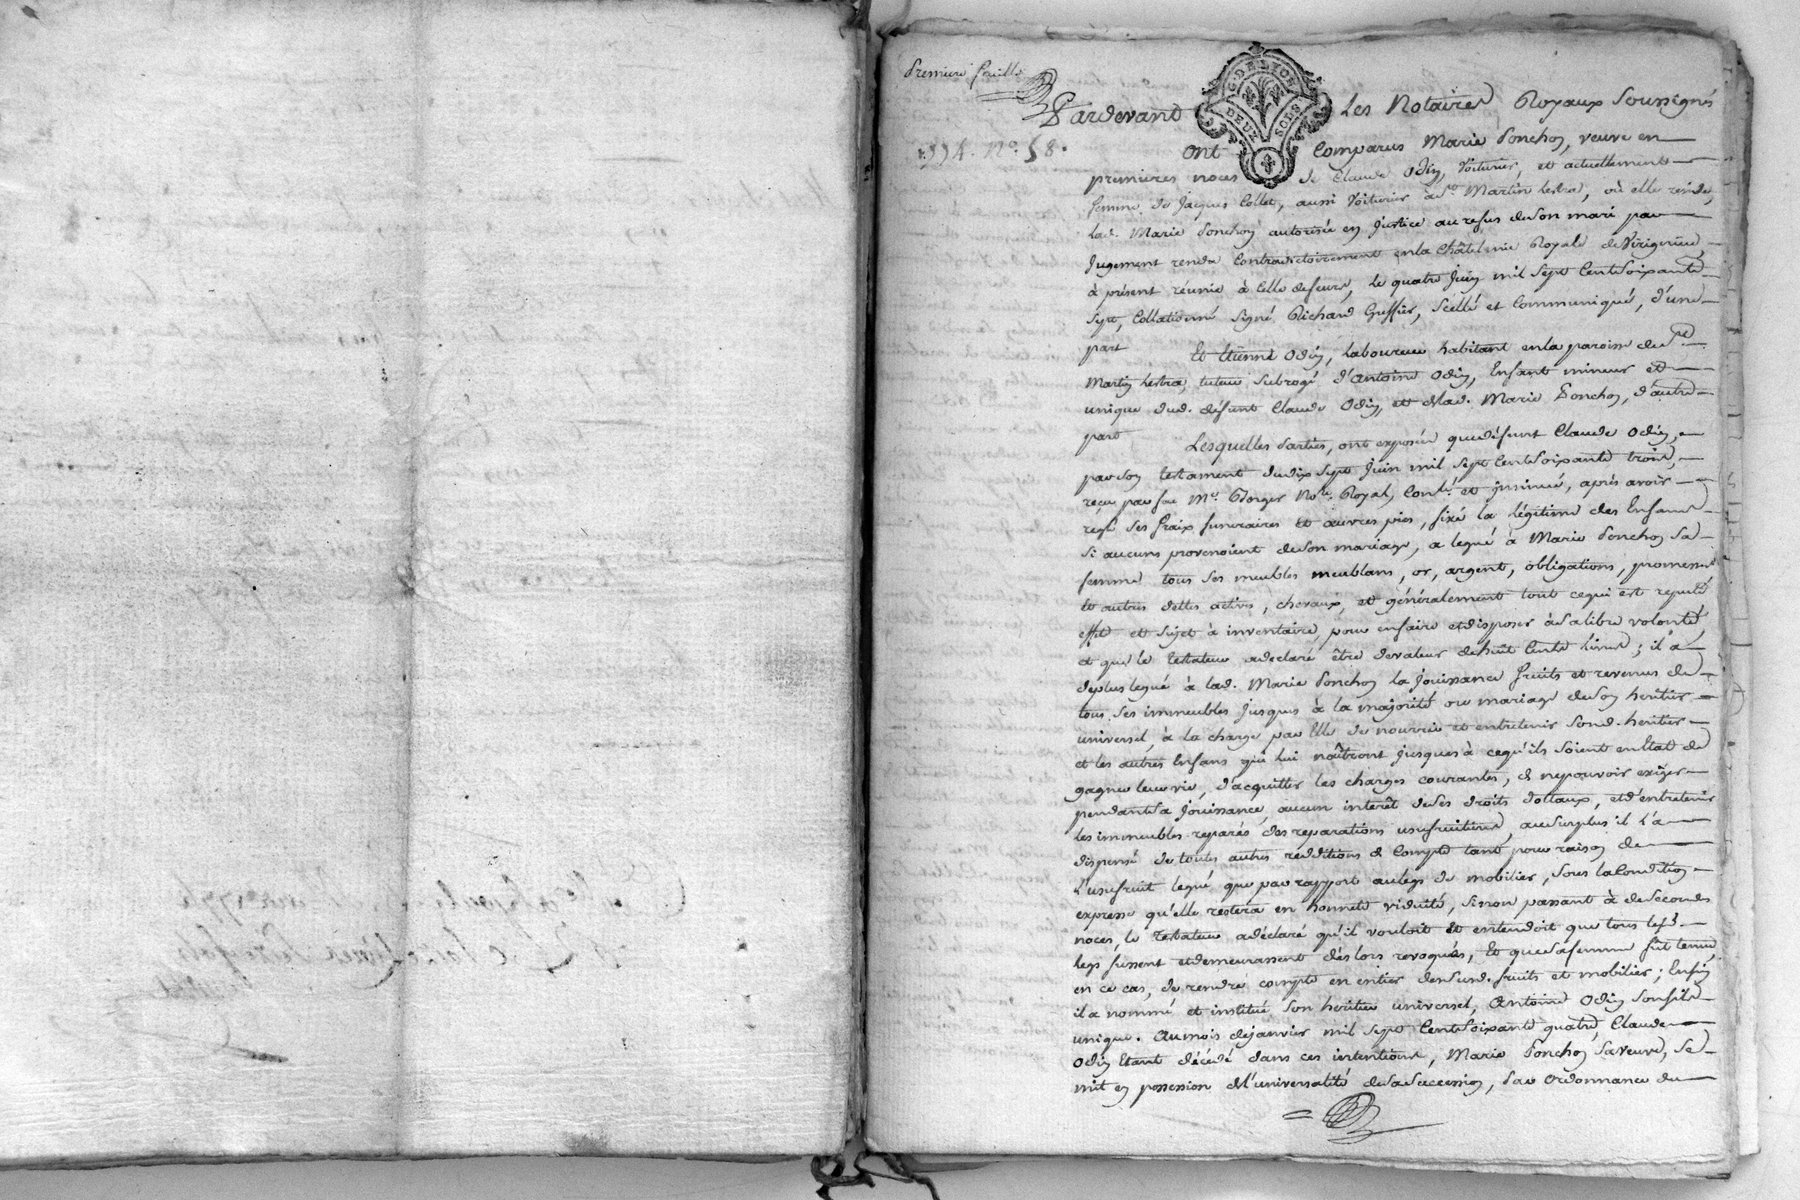 Premiere feuille
G. DE LYON
DEUX SOLS
Pardevant Les Notaires Royaux Soussignés
1774. No. 58.
ont Comparus Marie Ponchon, veuve en
premieres noces de Claude Odin, Voiturier, et actuellement
femme de Jacques Collet, aussi Voiturier à St. Martin Lestra, où elle reside,
lad. Marie Ponchon autorisée en Justice au refus de son mari par
Jugement rendu Contradictoirement en la Châtelnie Royale de
à présent réunie à Celle de feurs, le quatre Juin mil sept Cent Soixante
sept, Collationné signé Richard Greffier, Scellé et Communiqué, d'une
part
Et Etienne Odin, Laboureur habitant en la paroisse de St.
Martin Lestra, tuteur subrogé d'Antoine Odin, Enfant mineur et
unique dud. défunt Claude Odin, et de lad. Marie Ponchon, d'autre
part
Lesquelles Parties, ont exposées que défunt Claude Odin,
par son testament du dix sept Juin mil sept Cent Soixante trois,
reçu par feu Me. Notre. Royal, Contlé. et insinué, après avoir
reglé ses fraix funeraires et œuvres pies, fixé la légitime des Enfans
si aucuns provenoient de son mariage, a legué à Marie Ponchon Sa
femme tous ses meubles meublans, or, argent, obligations, promesses
et autres dettes actives, chevaux, et généralement tout ce qui est reputé
effet et sujet à inventaire, pour en faire et disposer à sa libre volonté
et que le testateur a declaré être de valeur de huit Cents Livres; il a
de plus legué à lad. Marie Ponchon la Jouissance fruits et revenus de
tous ses immeubles Jusques à la majorité ou mariage de son heritier
universel, à la charge par Elle de nourrir et entretenir sond. heritier
et les autres Enfans qui lui naîtront Jusques à ce qu'ils soient en Etat de
gagner leur vie, d'acquitter les charges courantes, de ne pouvoir exiger
pendant sa Jouissance, aucun interêt de ses droits dottaux, et d'entretenir
les immeubles reparés des reparations usufruitieres, au surplus il l'a
dispensé de toutes autres redditions de Compte tant pour raison de
L'usufruit legué, que par rapport au legs de mobilier, sous la Condition
expresse qu'elle restera en honnete viduité, sinon passant à de secondes
noces, le Testateur a déclaré qu'il vouloit et entendoit que tous lesd.
legs fussent et demeurassent dès lors revoqués, Et que sa femme fut tenue
en ce cas, de rendre compte en entier desd. fruits et mobilier; Enfin
il a nommé et institué son heritier universel, Antoine Odin Son fils
unique. Au mois de janvier mil sept Cent Soixante quatre, Claude
Odin Etant décédé dans ces intentions, Marie Ponchon Sa Veuve, se
mit en possession de l'universalité de sa Succession, Par Ordonnance du